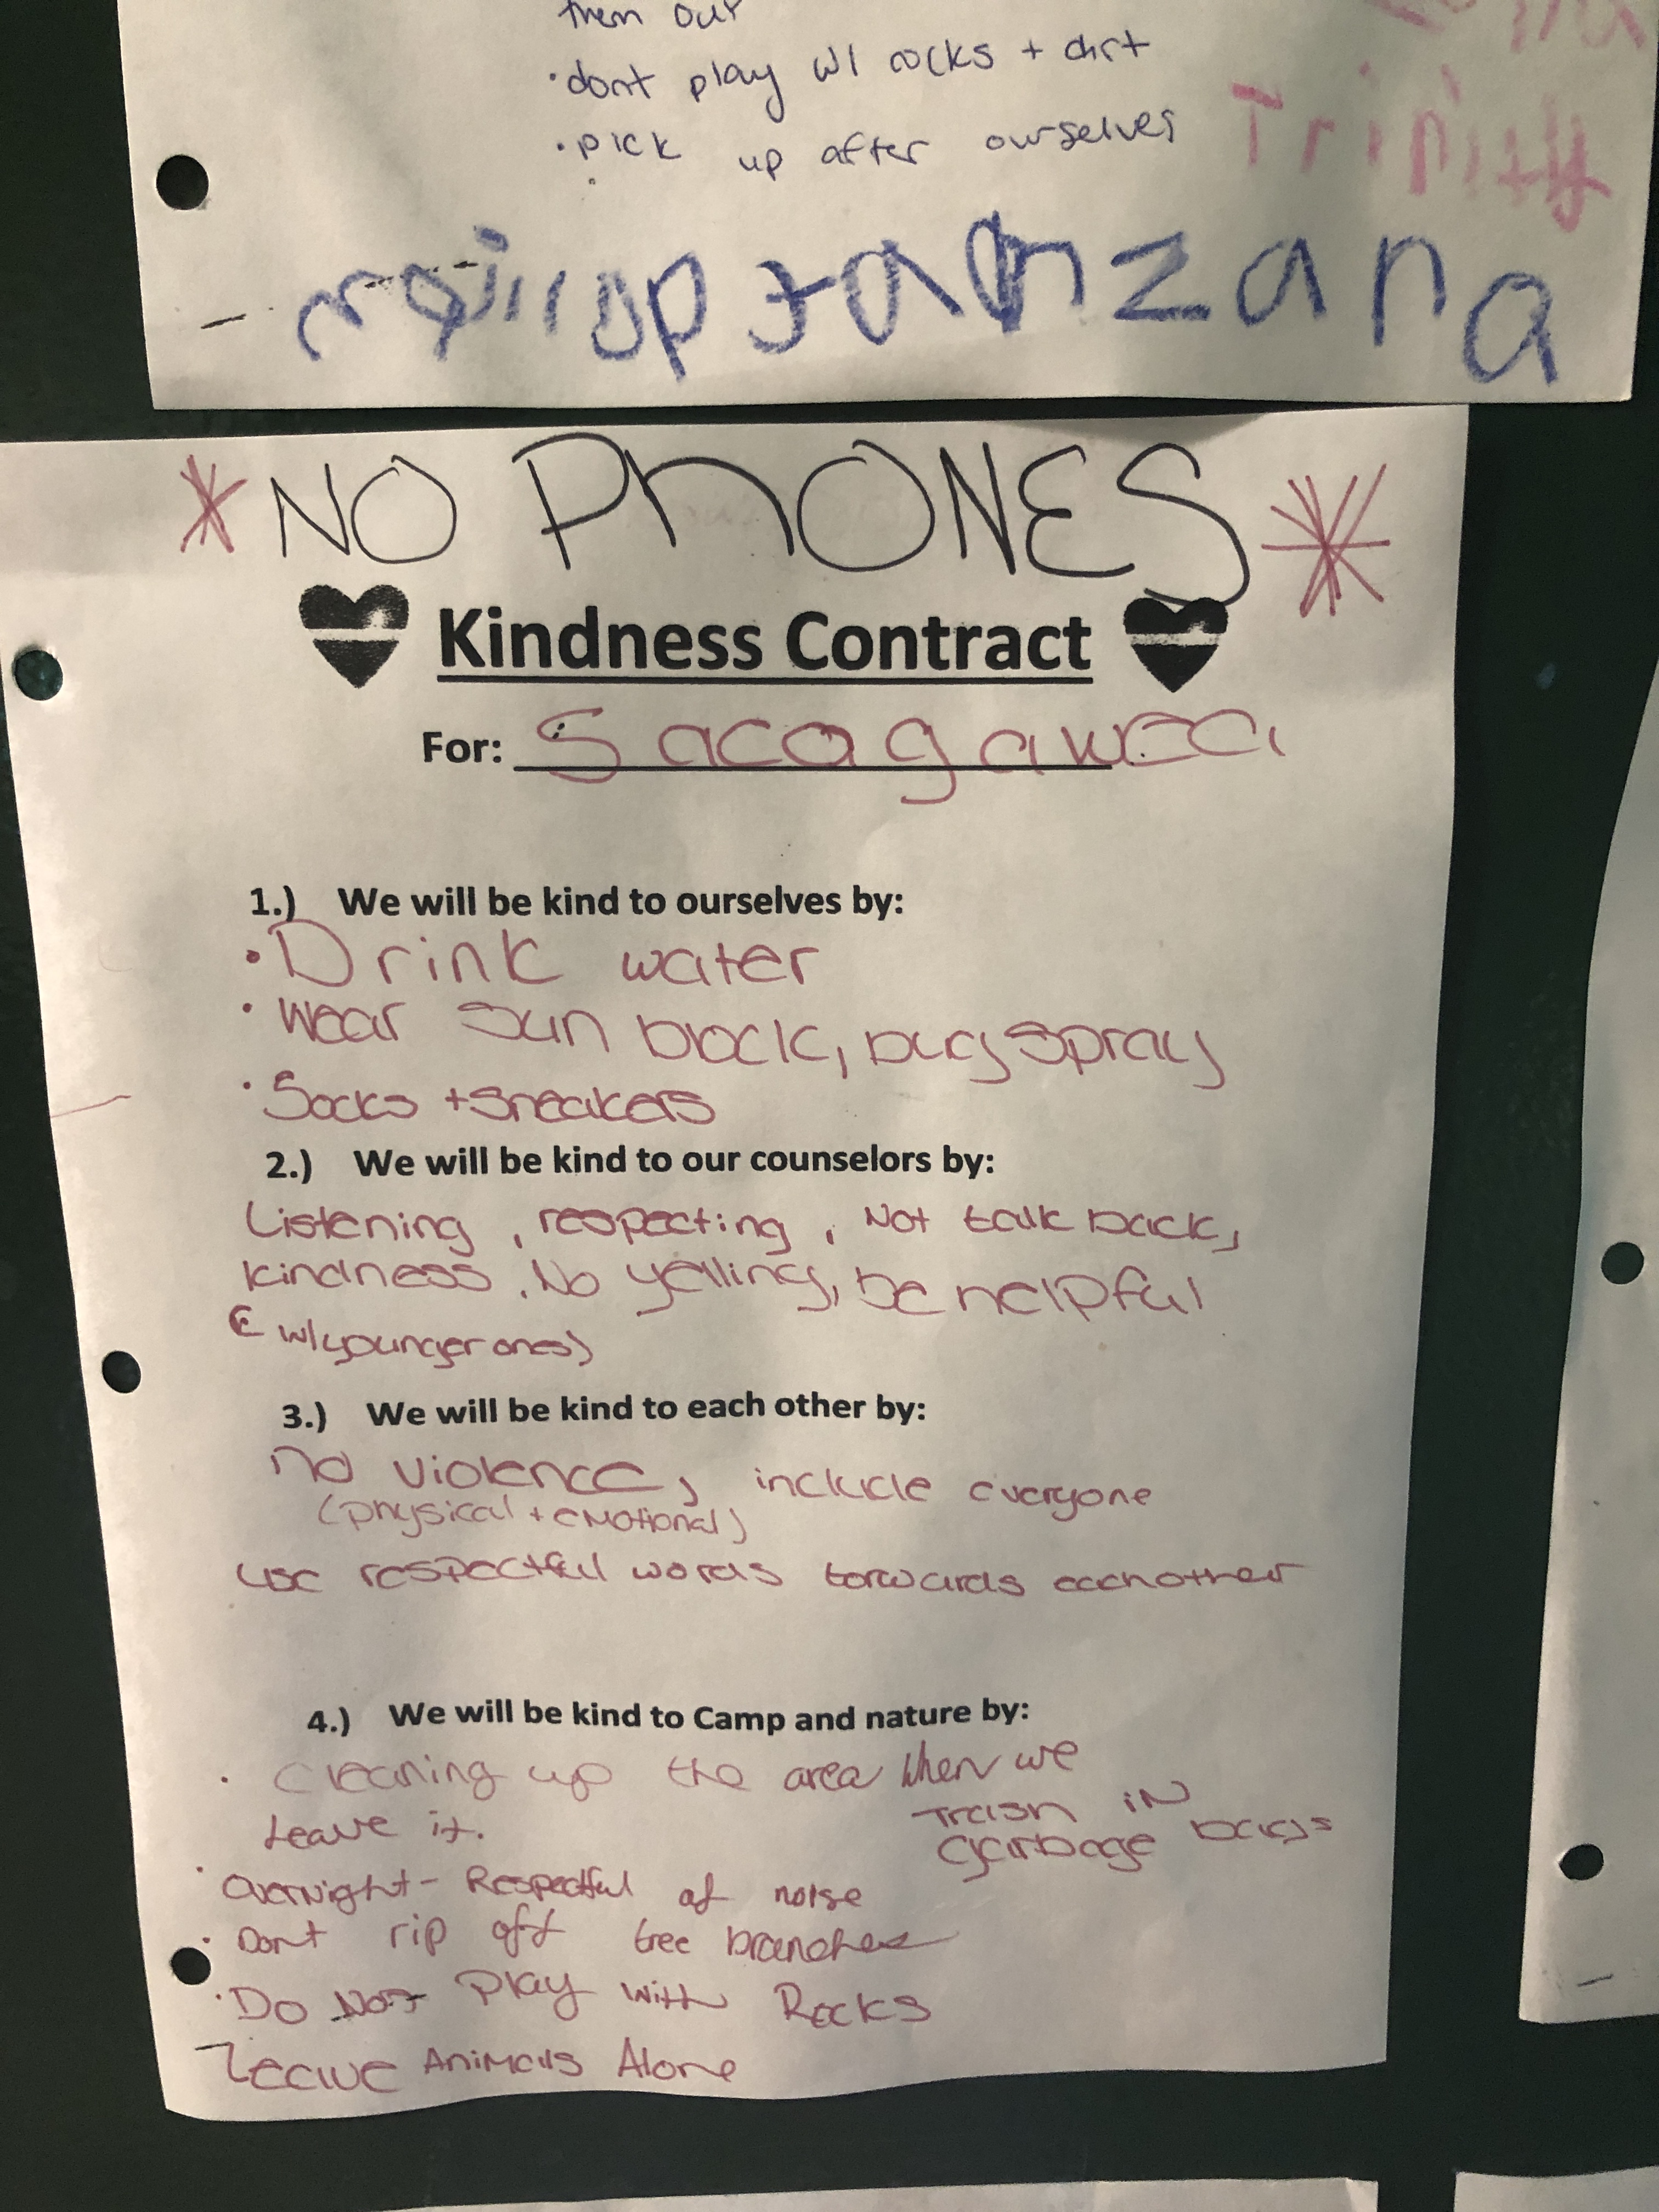 them out
• dont play w/ rocks + dirt
• pick up after ourselves
Trinity
* NO PhONES *
Kindness Contract
For: Sacagawea
1.) We will be kind to ourselves by:
• Drink water
• Wear sun block, bug spray
• Socks + Sneakers
2.) We will be kind to our counselors by:
Listening, respecting, Not talk back,
kindness, No yelling, be helpful
(w/ younger ones)
3.) We will be kind to each other by:
no violence, include everyone
(physical + emotional)
use respectful words torwards eachother
4.) We will be kind to Camp and nature by:
• Cleaning up the area when we
Leave it.
Trash iN
garbage bags
• Overnight - Respectful of noise
• Dont rip off tree branches
• Do NOT Play with Rocks
- Leave Animals Alone